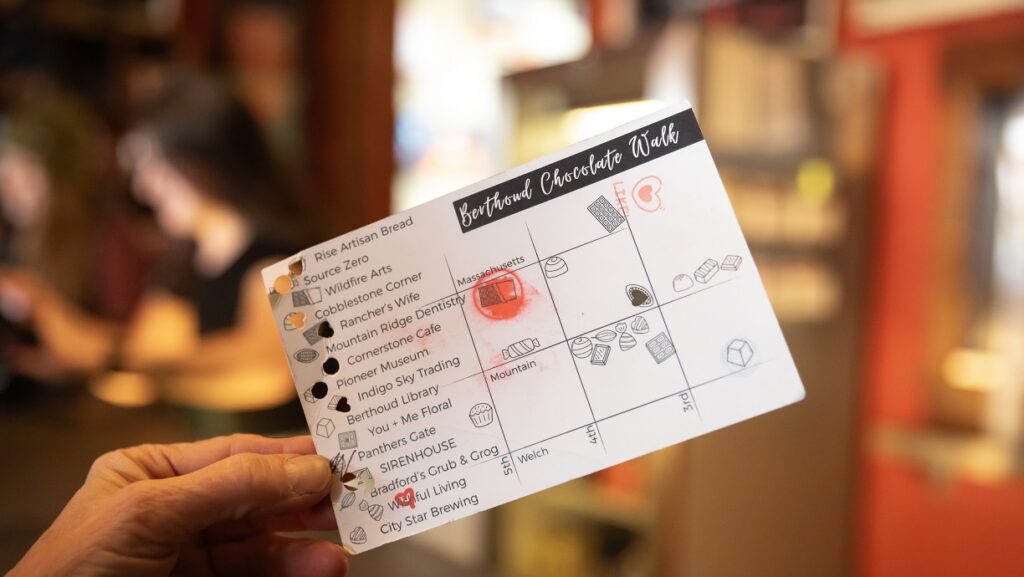 Berthoud Chocolate Walk
LIKE
Rise Artisan Bread
Source Zero
Wildfire Arts
Cobblestone Corner
Rancher's Wife
Mountain Ridge Dentistry
Cornerstone Cafe
Pioneer Museum
Indigo Sky Trading
Berthoud Library
You + Me Floral
Panthers Gate
SIRENHOUSE
Bradford's Grub & Grog
Living
City Star Brewing
Massachusetts
Mountain
Welch
5th
4th
3rd